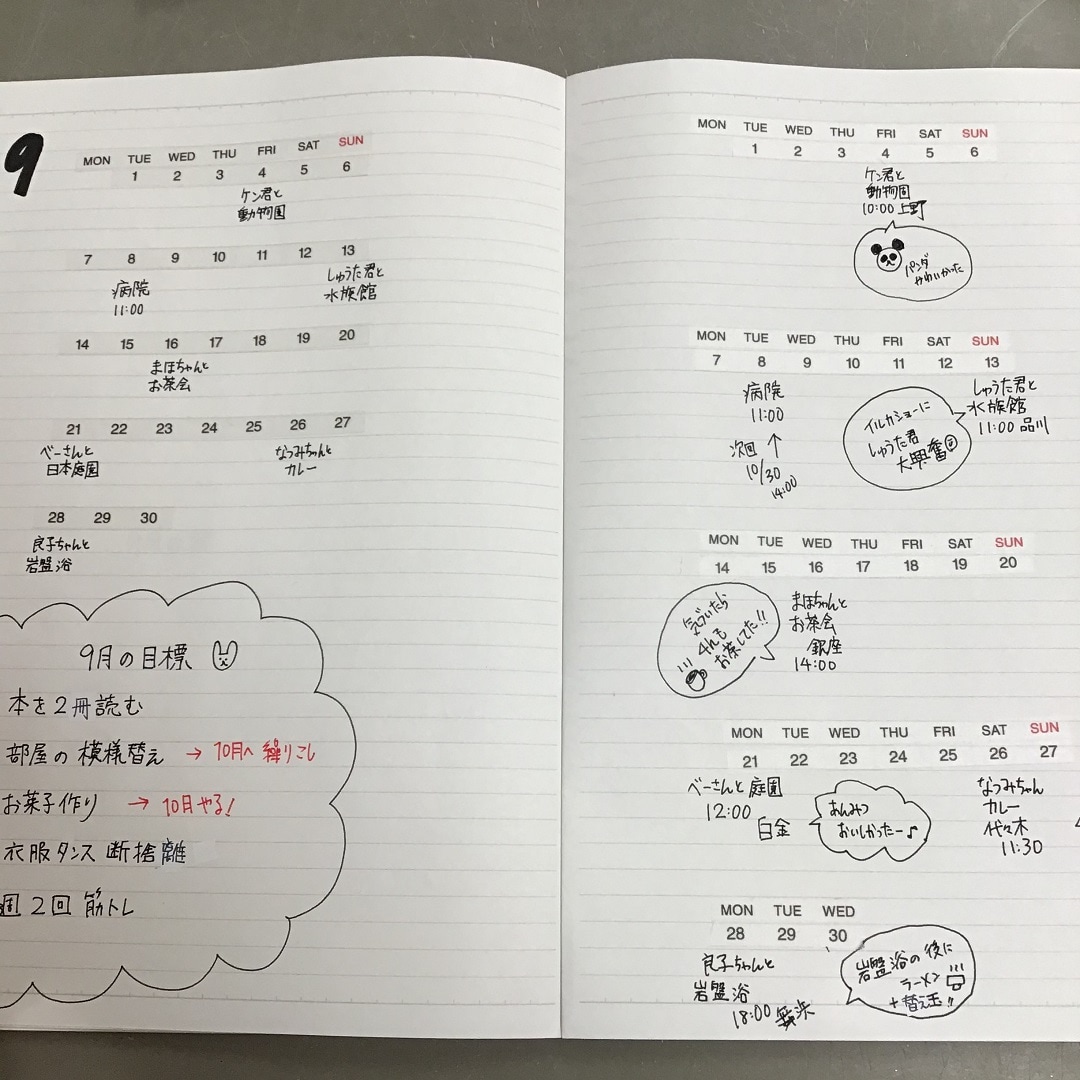 9
MON TUE WED THU FRI SAT SUN
1 2 3 4 5 6
ケン君と
動物園
7 8 9 10 11 12 13
病院
11:00
しゅうた君と
水族館
14 15 16 17 18 19 20
まほちゃんと
お茶会
21 22 23 24 25 26 27
べーさんと
日本庭園
なつみちゃんと
カレー
28 29 30
良子ちゃんと
岩盤浴
9月の目標
本を2冊読む
部屋の模様替え → 10月へ繰りこし
お菓子作り → 10月やる!
衣服タンス断捨離
週2回 筋トレ
MON TUE WED THU FRI SAT SUN
1 2 3 4 5 6
ケン君と
動物園
10:00 上野
パンダ
かわいかった
MON TUE WED THU FRI SAT SUN
7 8 9 10 11 12 13
病院
11:00
次回 ↑
10/30
14:00
イルカショーに
しゅうた君
大興奮
しゅうた君と
水族館
11:00 品川
MON TUE WED THU FRI SAT SUN
14 15 16 17 18 19 20
気づいたら
4hも
お茶してた!!
まほちゃんと
お茶会
銀座
14:00
MON TUE WED THU FRI SAT SUN
21 22 23 24 25 26 27
べーさんと庭園
12:00
白金
あんみつ
おいしかったー♪
なつみちゃん
カレー
代々木
11:30
MON TUE WED
28 29 30
良子ちゃんと
岩盤浴
18:00 舞浜
岩盤浴の後に
ラーメン
+替え玉!!